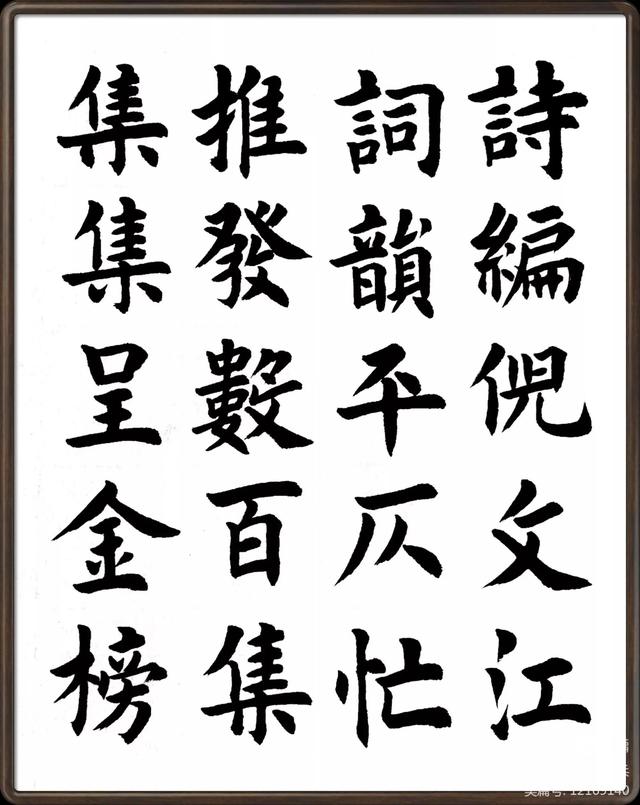 詩編倪文江
詞韻平仄忙
推發數百集
集集呈金榜
美篇号: 12165140